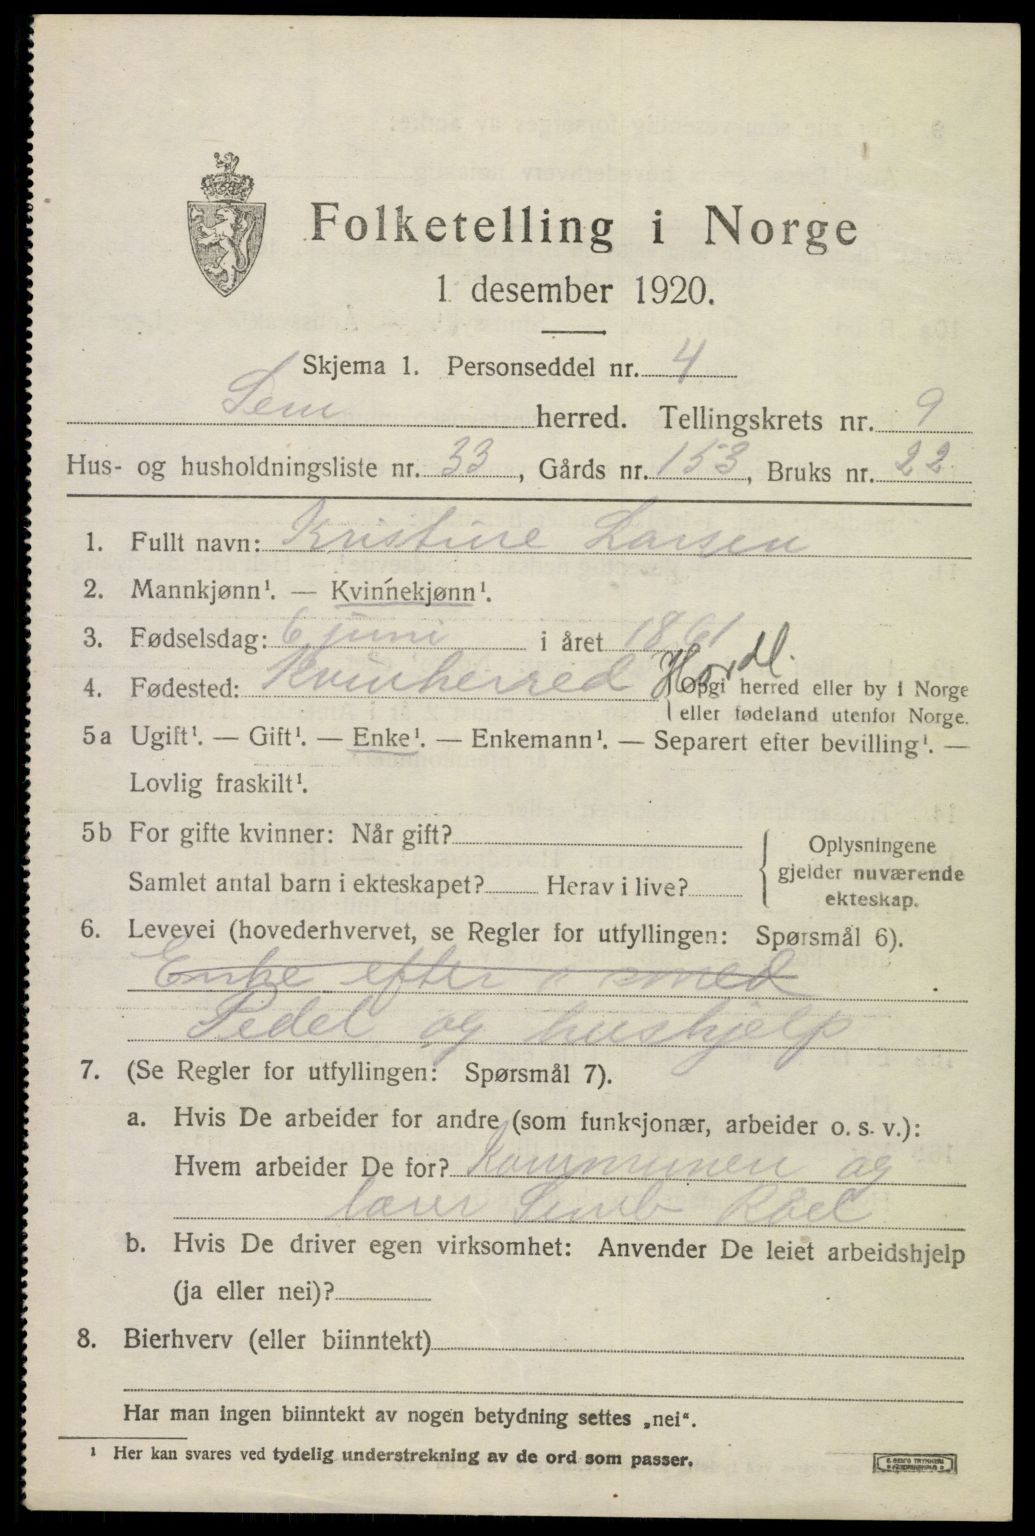 Folketelling i Norge
1. desember 1920.
Skjema 1. Personseddel nr. 4
Sem herred. Tellingskrets nr. 9
Hus- og husholdningsliste nr. 33, Gårds nr. 153, Bruks nr. 22
1. Fullt navn: Kristine Larsen
2. Mannkjønn¹. — Kvinnekjønn¹.
3. Fødselsdag: 6 juni i året 1861
4. Fødested: Kvinherred Hordl. Opgi herred eller by i Norge
eller fødeland utenfor Norge.
5a Ugift¹. — Gift¹. — Enke¹. — Enkemann¹. — Separert efter bevilling¹. —
Lovlig fraskilt¹.
5b For gifte kvinner: Når gift?
Samlet antal barn i ekteskapet? Herav i live?
Oplysningene
gjelder nuværende
ekteskap.
6. Levevei (hovederhvervet, se Regler for utfyllingen: Spørsmål 6).
Enke efter smed
Pedel og hushjelp
7. (Se Regler for utfyllingen: Spørsmål 7).
a. Hvis De arbeider for andre (som funksjonær, arbeider o. s. v.):
Hvem arbeider De for? Kommunen og
lærer
b. Hvis De driver egen virksomhet: Anvender De leiet arbeidshjelp
(ja eller nei)?
8. Bierhverv (eller biinntekt)
Har man ingen biinntekt av nogen betydning settes „nei“.
¹ Her kan svares ved tydelig understrekning av de ord som passer.